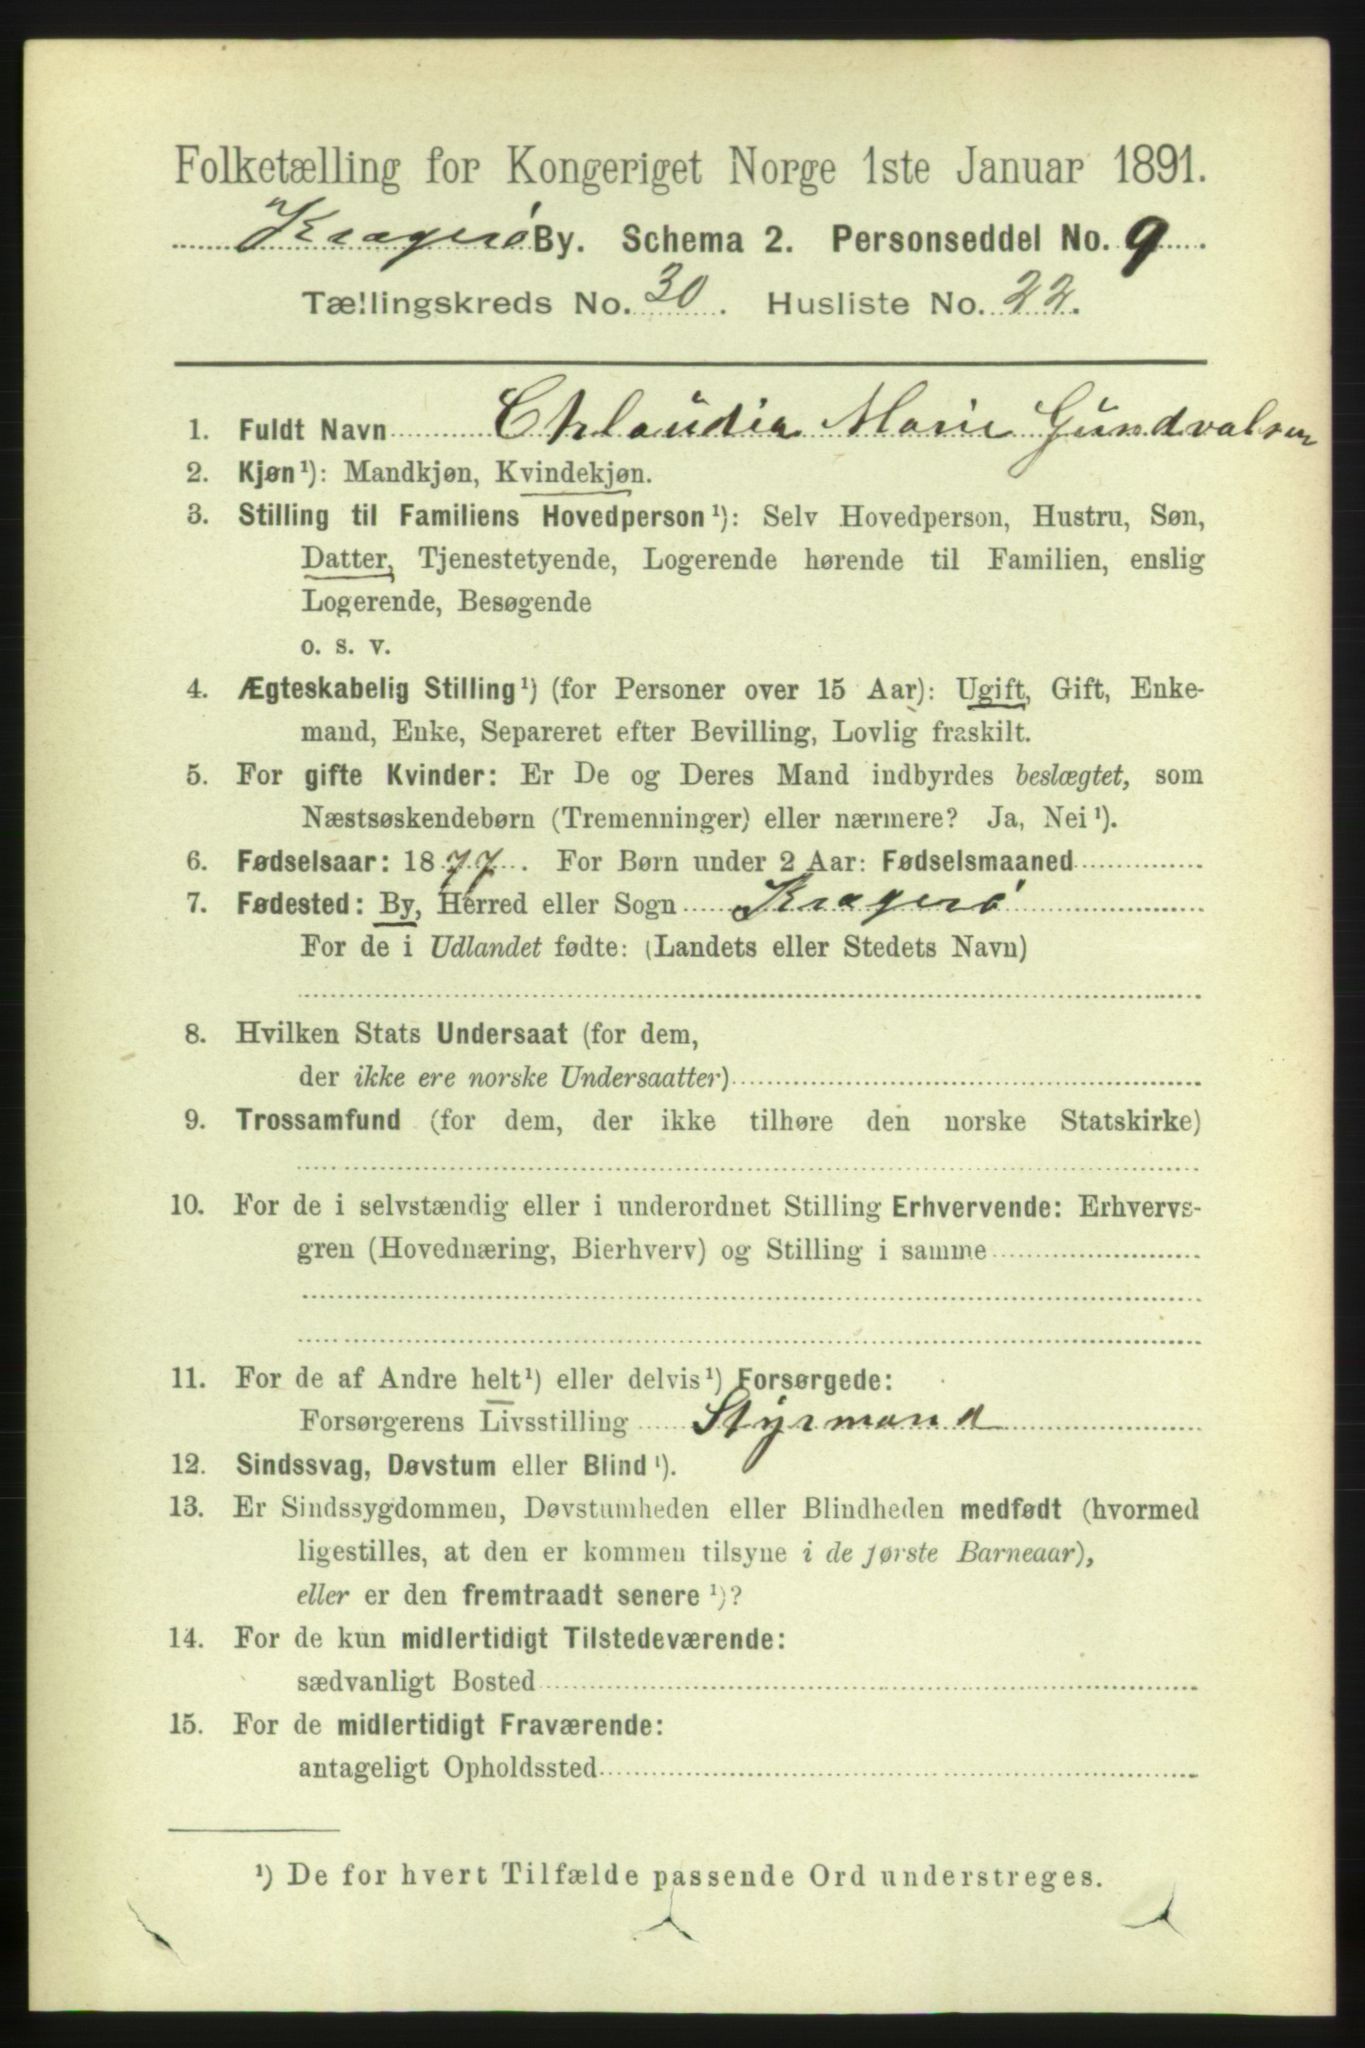 Folketælling for Kongeriget Norge 1ste Januar 1891.
Kragerö By. Schema 2. Personseddel No. 9
Tællingskreds No. 30. Husliste No. 22.
1. Fuldt Navn Chlaudia Marie Gundvalsen
2. Kjøn¹): Mandkjøn, Kvindekjøn.
3. Stilling til Familiens Hovedperson¹): Selv Hovedperson, Hustru, Søn,
Datter, Tjenestetyende, Logerende hørende til Familien, enslig
Logerende, Besøgende
o. s. v.
4. Ægteskabelig Stilling¹) (for Personer over 15 Aar): Ugift, Gift, Enke-
mand, Enke, Separeret efter Bevilling, Lovlig fraskilt.
5. For gifte Kvinder: Er De og Deres Mand indbyrdes beslægtet, som
Næstsøskendebørn (Tremenninger) eller nærmere? Ja, Nei¹).
6. Fødselsaar: 1877. For Børn under 2 Aar: Fødselsmaaned
7. Fødested: By, Herred eller Sogn Kragerö
For de i Udlandet fødte: (Landets eller Stedets Navn)
8. Hvilken Stats Undersaat (for dem,
der ikke ere norske Undersaatter)
9. Trossamfund (for dem, der ikke tilhøre den norske Statskirke)
10. For de i selvstændig eller i underordnet Stilling Erhvervende: Erhvervs-
gren (Hovednæring, Bierhverv) og Stilling i samme
11. For de af Andre helt¹) eller delvis¹) Forsørgede:
Forsørgerens Livsstilling Styrmand
12. Sindssvag, Døvstum eller Blind¹).
13. Er Sindssygdommen, Døvstumheden eller Blindheden medfødt (hvormed
ligestilles, at den er kommen tilsyne i de første Barneaar),
eller er den fremtraadt senere¹)?
14. For de kun midlertidigt Tilstedeværende:
sædvanligt Bosted
15. For de midlertidigt Fraværende:
antageligt Opholdssted
¹) De for hvert Tilfælde passende Ord understreges.